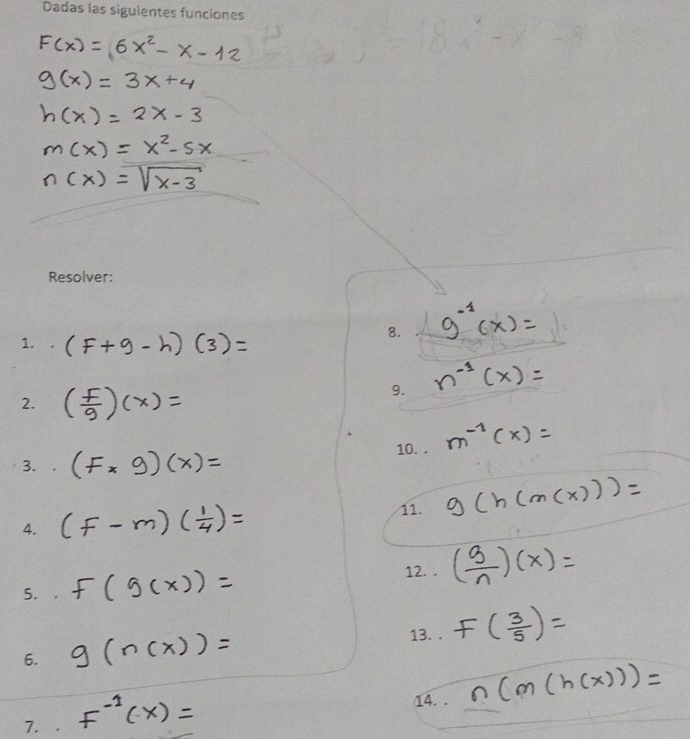 Dadas las siguientes funciones
F(x) = 6x² - x - 12
g(x) = 3x + 4
h(x) = 2x - 3
m(x) = x² - 5x
n(x) = √(x-3)
Resolver:
1. . (F + g - h) (3) =
2. (F/g)(x) =
3. . (F × g)(x) =
4. (F - m)(1/4) =
5. . F(g(x)) =
6. g(n(x)) =
7. . F⁻¹(x) =
8. g⁻¹(x) =
9. n⁻¹(x) =
10. . m⁻¹(x) =
11. g(h(m(x))) =
12. . (g/n)(x) =
13. . F(3/5) =
14. . n(m(h(x))) =